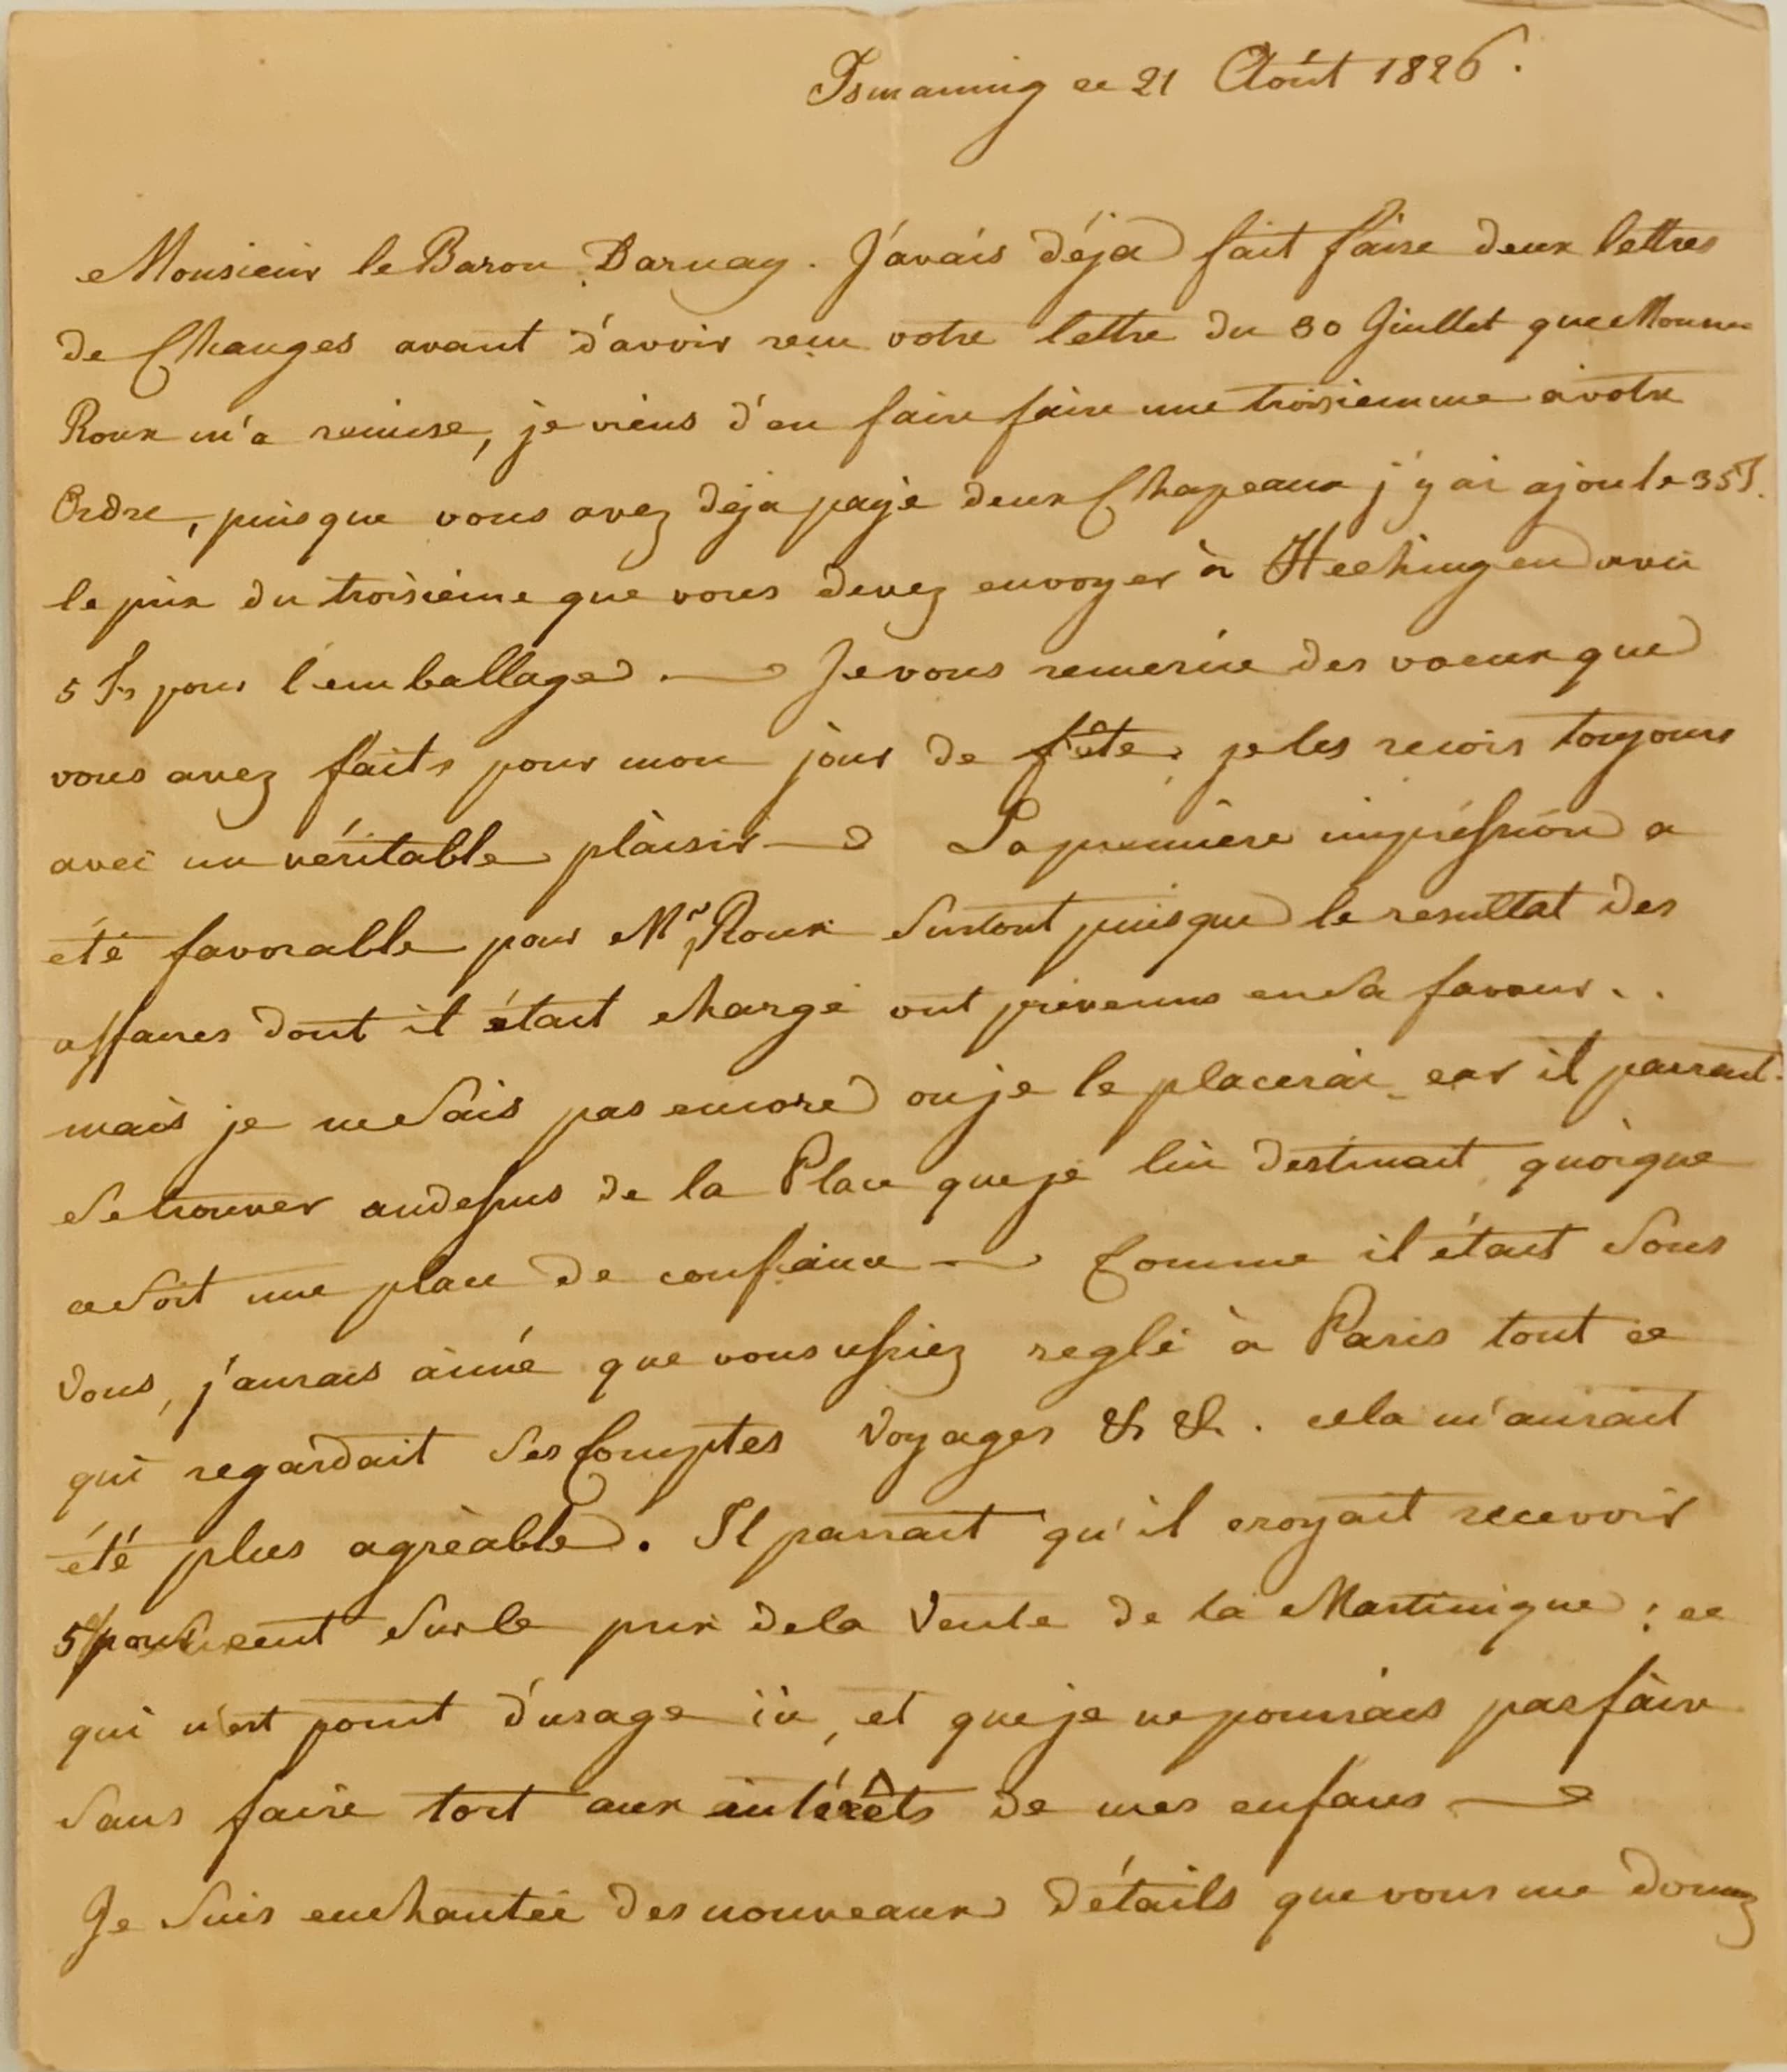 Ismaning ce 21 Août 1826.
Monsieur le Baron Darnay. J'avais déja fait faire deux lettres
de Changes avant d'avoir reçu votre lettre du 30 Juillet que
Roux m'a remise, je viens d'en faire faire une troisiemme à votre
Ordre, puisque vous avez déja payé deux Chapeaux j'y ai ajouté 35 f.
le prix du troisième que vous devez envoyer à Hechingen avec
5 frs pour l'emballage. — Je vous remercie des voeux que
vous avez faits pour mon jour de fête, je les reçois toujours
avec un véritable plaisir — La première impréssion a
été favorable pour Mr Roux surtout puisque le resultat des
affaires dont il était chargé ont prévenus en sa faveur..
mais je ne sais pas encore ou je le placerai car il parrait
se trouver audessus de la Place que je lui destinait, quoique
ce soit une place de confiance — Comme il était sous
Vous, j'aurais aimé que vous ussiez reglé à Paris tout ce
qui regardait ses Comptes Voyages & &. cela m'aurait
été plus agrèable. Il parrait qu'il croyait recevoir
5 pour cent sur le prix de la Vente de la Martinique; ce
qui n'est point d'usage ici, et que je ne pourrais pas faire
sans faire tort aux intérêts de mes enfans —
Je suis enchantée des nouveaux détails que vous me donnez